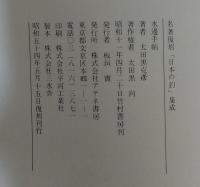 名著復刻「日本の釣」集成
水邊手帖
著者 太田黒克彦
著作権者 太田黒 向
昭和十一年四月二十日竹村書房刊
発行者 板垣 實
発行所 株式会社アテネ書房
東京都文京区本郷一-一-一
電話〇三-八一六-三八七一
印刷 株式会社平河工業社
製本 株式会社三水舎
昭和五十四年五月十五日復刻刊行